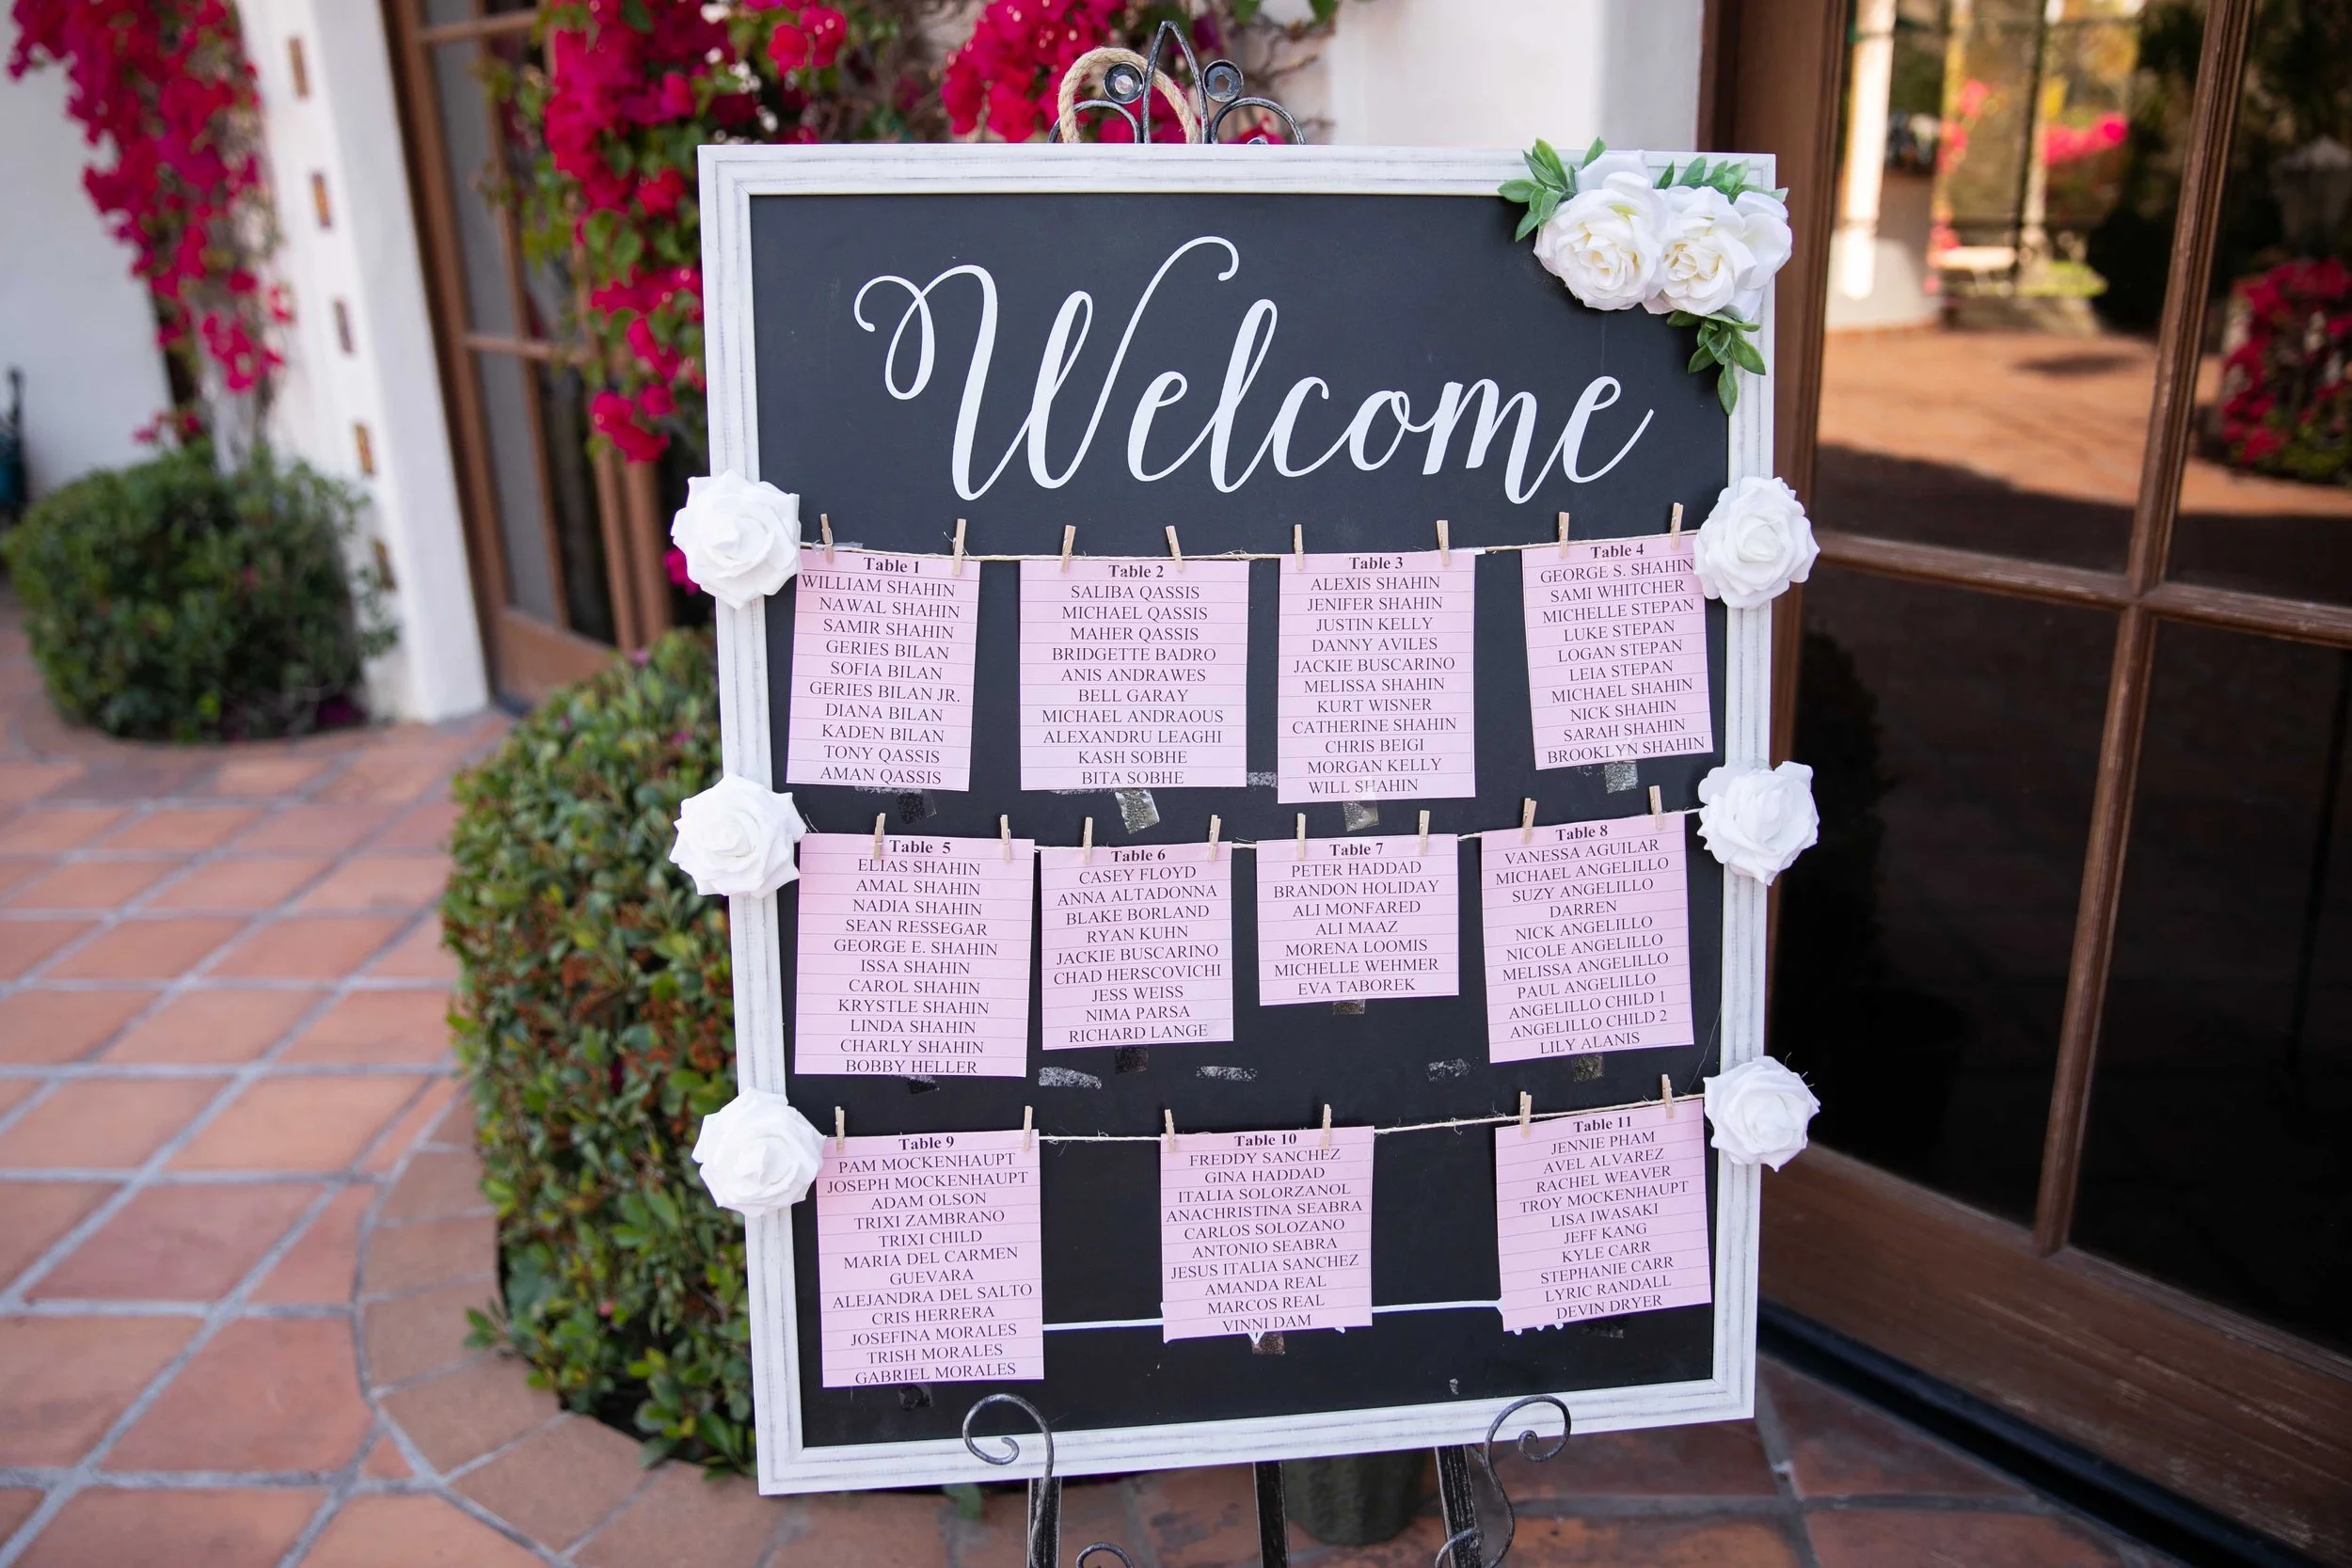 Welcome
Table 1
WILLIAM SHAHIN
NAWAL SHAHIN
SAMIR SHAHIN
GERIES BILAN
SOFIA BILAN
GERIES BILAN JR.
DIANA BILAN
KADEN BILAN
TONY QASSIS
AMAN QASSIS
Table 2
SALIBA QASSIS
MICHAEL QASSIS
MAHER QASSIS
BRIDGETTE BADRO
ANIS ANDRAWES
BELL GARAY
MICHAEL ANDRAOUS
ALEXANDRU LEAGHI
KASH SOBHE
BITA SOBHE
Table 3
ALEXIS SHAHIN
JENIFER SHAHIN
JUSTIN KELLY
DANNY AVILES
JACKIE BUSCARINO
MELISSA SHAHIN
KURT WISNER
CATHERINE SHAHIN
CHRIS BEIGI
MORGAN KELLY
WILL SHAHIN
Table 4
GEORGE S. SHAHIN
SAMI WHITCHER
MICHELLE STEPAN
LUKE STEPAN
LOGAN STEPAN
LEIA STEPAN
MICHAEL SHAHIN
NICK SHAHIN
SARAH SHAHIN
BROOKLYN SHAHIN
Table 5
ELIAS SHAHIN
AMAL SHAHIN
NADIA SHAHIN
SEAN RESSEGAR
GEORGE E. SHAHIN
ISSA SHAHIN
CAROL SHAHIN
KRYSTLE SHAHIN
LINDA SHAHIN
CHARLY SHAHIN
BOBBY HELLER
Table 6
CASEY FLOYD
ANNA ALTADONNA
BLAKE BORLAND
RYAN KUHN
JACKIE BUSCARINO
CHAD HERSCOVICHI
JESS WEISS
NIMA PARSA
RICHARD LANGE
Table 7
PETER HADDAD
BRANDON HOLIDAY
ALI MONFARED
ALI MAAZ
MORENA LOOMIS
MICHELLE WEHMER
EVA TABOREK
Table 8
VANESSA AGUILAR
MICHAEL ANGELILLO
SUZY ANGELILLO
DARREN
NICK ANGELILLO
NICOLE ANGELILLO
MELISSA ANGELILLO
PAUL ANGELILLO
ANGELILLO CHILD 1
ANGELILLO CHILD 2
LILY ALANIS
Table 9
PAM MOCKENHAUPT
JOSEPH MOCKENHAUPT
ADAM OLSON
TRIXI ZAMBRANO
TRIXI CHILD
MARIA DEL CARMEN
GUEVARA
ALEJANDRA DEL SALTO
CRIS HERRERA
JOSEFINA MORALES
TRISH MORALES
GABRIEL MORALES
Table 10
FREDDY SANCHEZ
GINA HADDAD
ITALIA SOLORZANOL
ANACHRISTINA SEABRA
CARLOS SOLOZANO
ANTONIO SEABRA
JESUS ITALIA SANCHEZ
AMANDA REAL
MARCOS REAL
VINNI DAM
Table 11
JENNIE PHAM
AVEL ALVAREZ
RACHEL WEAVER
TROY MOCKENHAUPT
LISA IWASAKI
JEFF KANG
KYLE CARR
STEPHANIE CARR
LYRIC RANDALL
DEVIN DRYER